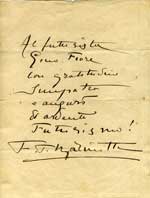 Al futurista
Gino Fiore
con gratitudine
simpatia
e auguri
di ardente
Futurismo!
F. T. Marinetti